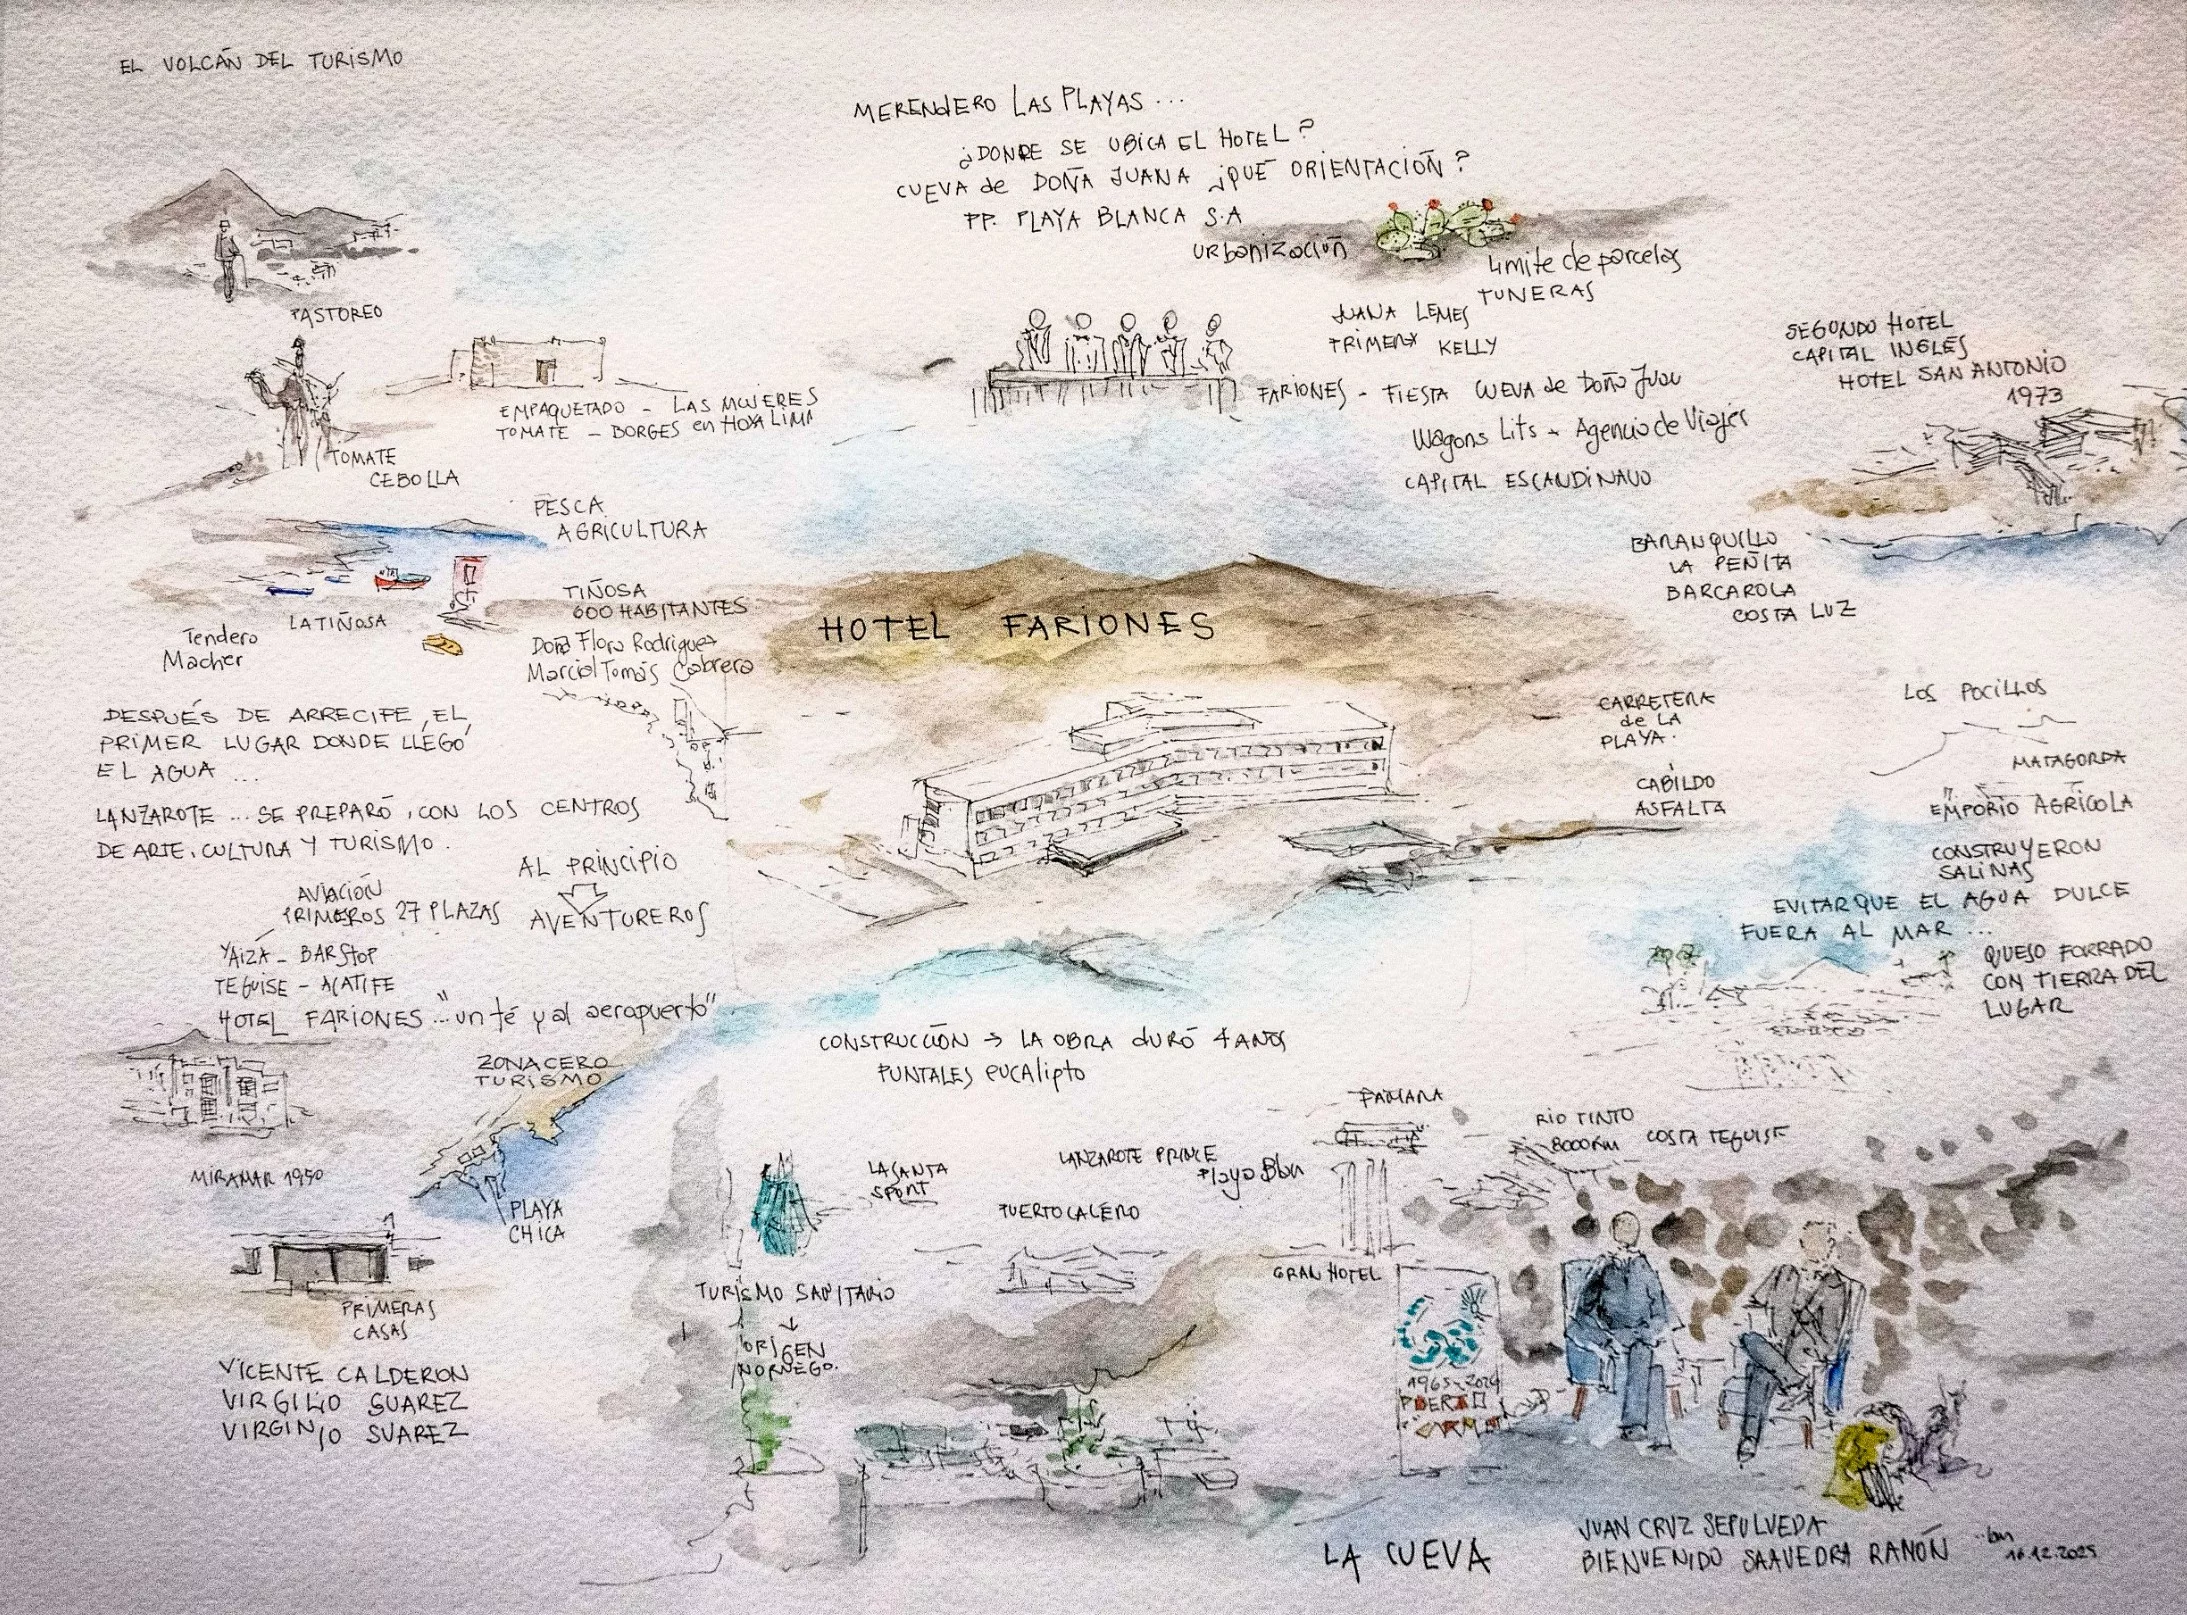 EL VOLCÁN DEL TURISMO
MERENDERO LAS PLAYAS ...
¿DONDE SE UBICA EL HOTEL?
CUEVA de DOÑA JUANA ¿QUÉ ORIENTACIÓN?
PP. PLAYA BLANCA S.A
URbANIZACIÓN
Limite de parcelas
TUNERAS
PASTOREO
EMPAQUETADO - LAS MUJERES
TOMATE - BORGES en HOYA LIMP
TOMATE
CEBOLLA
JUANA LEMES
PRIMERA KELLY
FARIONES - FIESTA CUEVA de Doña Juan
Wagons Lits - Agencia de Viajes
CAPITAL ESCANDINAVO
SEGUNDO HOTEL
CAPITAL INGLÉS
HOTEL SAN ANTONIO
1973
PESCA
AGRICULTURA
LA TIÑOSA
Tendero
Macher
TIÑOSA
600 HABITANTES
Doña Flora Rodriguez
Marcial Tomás Cabrera
HOTEL FARIONES
BARANQUILLO
LA PEÑITA
BARCAROLA
COSTA LUZ
DESPUÉS DE ARRECIFE, EL
PRIMER LUGAR DONDE LLEGÓ
EL AGUA ...
LANZAROTE ... SE PREPARÓ, CON LOS CENTROS
DE ARTE, CULTURA Y TURISMO.
CARRETERA
de LA
PLAYA.
CABILDO
ASFALTA
LOS POCILLOS
MATAGORDA
EMPORIO AGRÍCOLA
CONSTRUYERON
SALINAS
EVITAR QUE EL AGUA DULCE
FUERA AL MAR ...
QUESO FORRADO
CON TIERRA DEL
LUGAR
AL PRINCIPIO
AVENTUREROS
AVIACIÓN
PRIMEROS 27 PLAZAS
YAIZA - BAR STOP
TEGUISE - ACATIFE
HOTEL FARIONES ... "un té y al aeropuerto"
ZONA CERO
TURISMO
MIRAMAR 1950
PLAYA
CHICA
PRIMERAS
CASAS
VICENTE CALDERON
VIRGILIO SUAREZ
VIRGINIO SUAREZ
CONSTRUCCIÓN → LA OBRA dURÓ 4 AÑOS
PUNTALES eUCAlipto
LA SANTA
SPORT
LANZAROTE PRINCE
Playa Blan
PUERTO CALERO
GRAN HOTEL
RIO TINTO
8000 Km
COSTA TEGUISE
TURISMO SANITARIO
↓
ORIGEN
NORUEGO.
1965-2024
PUERTO
CARMEN
LA CUEVA
JUAN CRUZ SEPULVEDA
BIENVENIDO SAAVEDRA RAMÓN
16.12.2025